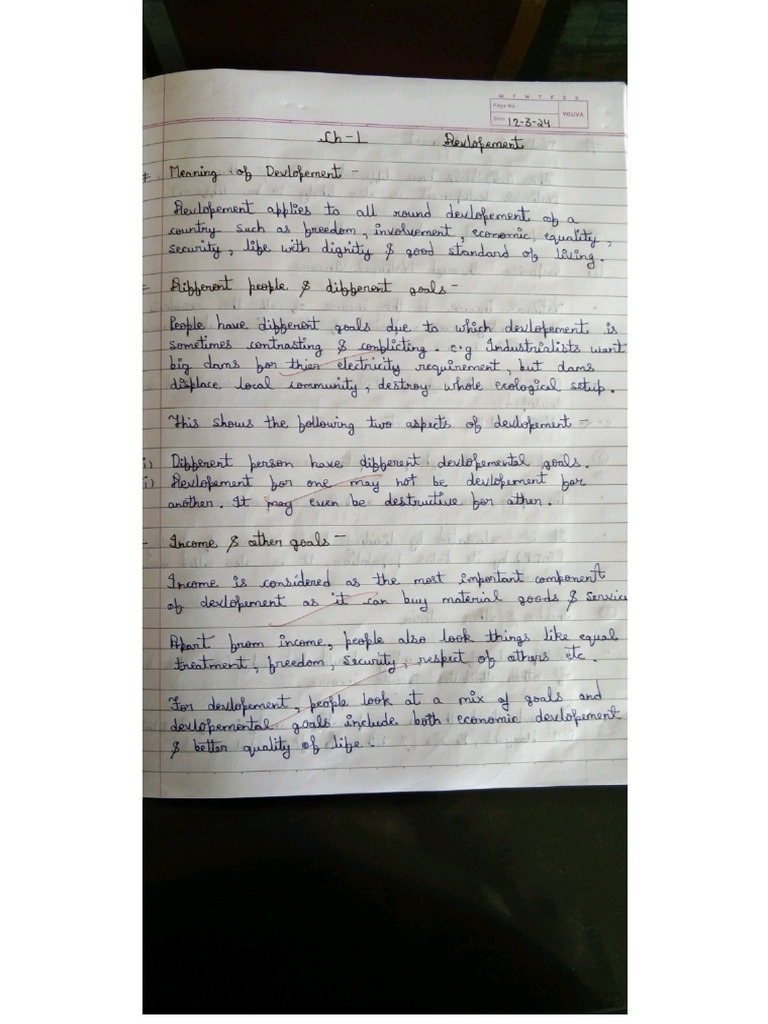 M T W T F S S
Page No.:
Date: 12-3-24
YOUVA
Ch-1 Devlopement
Meaning of Devlopement -
Devlopement applies to all round devlopement of a
country such as freedom, involvement, economic, equality,
security, life with dignity & good standard of living.
Different people & different goals -
People have different goals due to which devlopement is
sometimes contrasting & conflicting. e.g Industrialists want
big dams for thier electricity requirement, but dams
displace local community, destroy whole ecological setup.
This shows the following two aspects of devlopement -
i) Different person have different devlopemental goals.
i) Devlopement for one may not be devlopement for
another. It may even be destructive for other.
- Income & other goals -
Income is considered as the most important component
of devlopement as it can buy material goods & service
Apart from income, people also look things like equal
treatment, freedom, security, respect of others etc.
For devlopement, people look at a mix of goals and
devlopemental goals include both economic devlopement
& better quality of life.